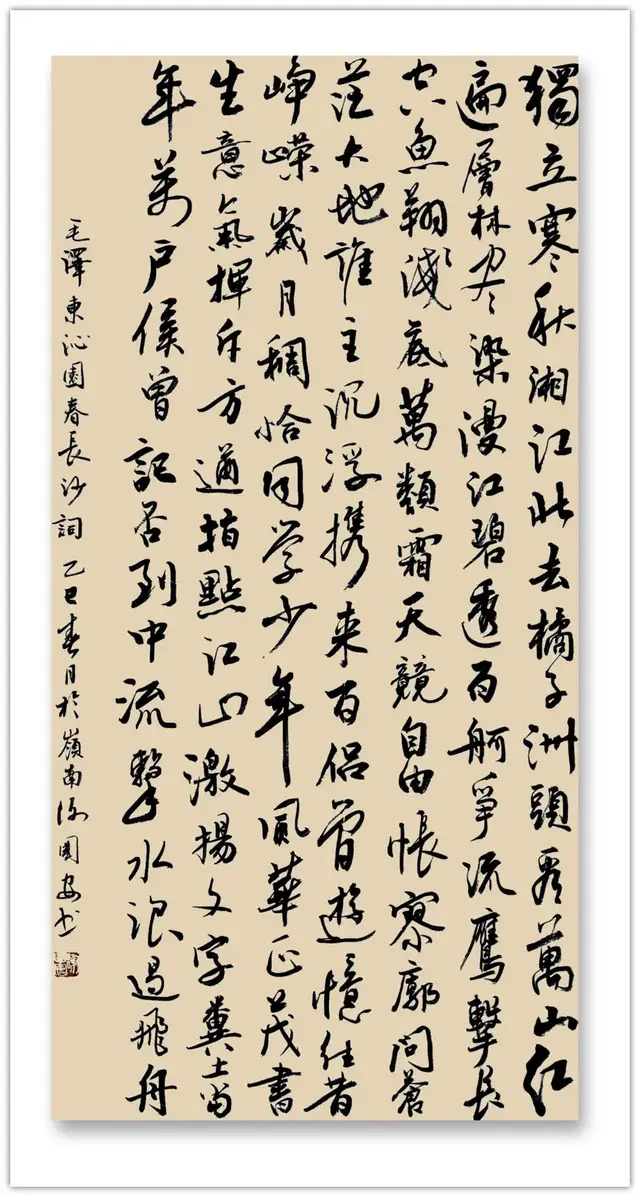 獨立寒秋湘江北去橘子洲頭看萬山红
遍層林尽染漫江碧透百舸爭流鷹擊長
空魚翔淺底萬類霜天競自由悵寥廓問蒼
茫大地誰主沉浮携来百侣曾遊憶往昔
峥嵘歲月稠恰同学少年風華正茂書
生意氣揮斥方遒指點江山激揚文字糞土當
年萬户侯曾記否到中流擊水浪遏飛舟
毛澤東沁園春長沙詞 乙巳春月於嶺南國安书